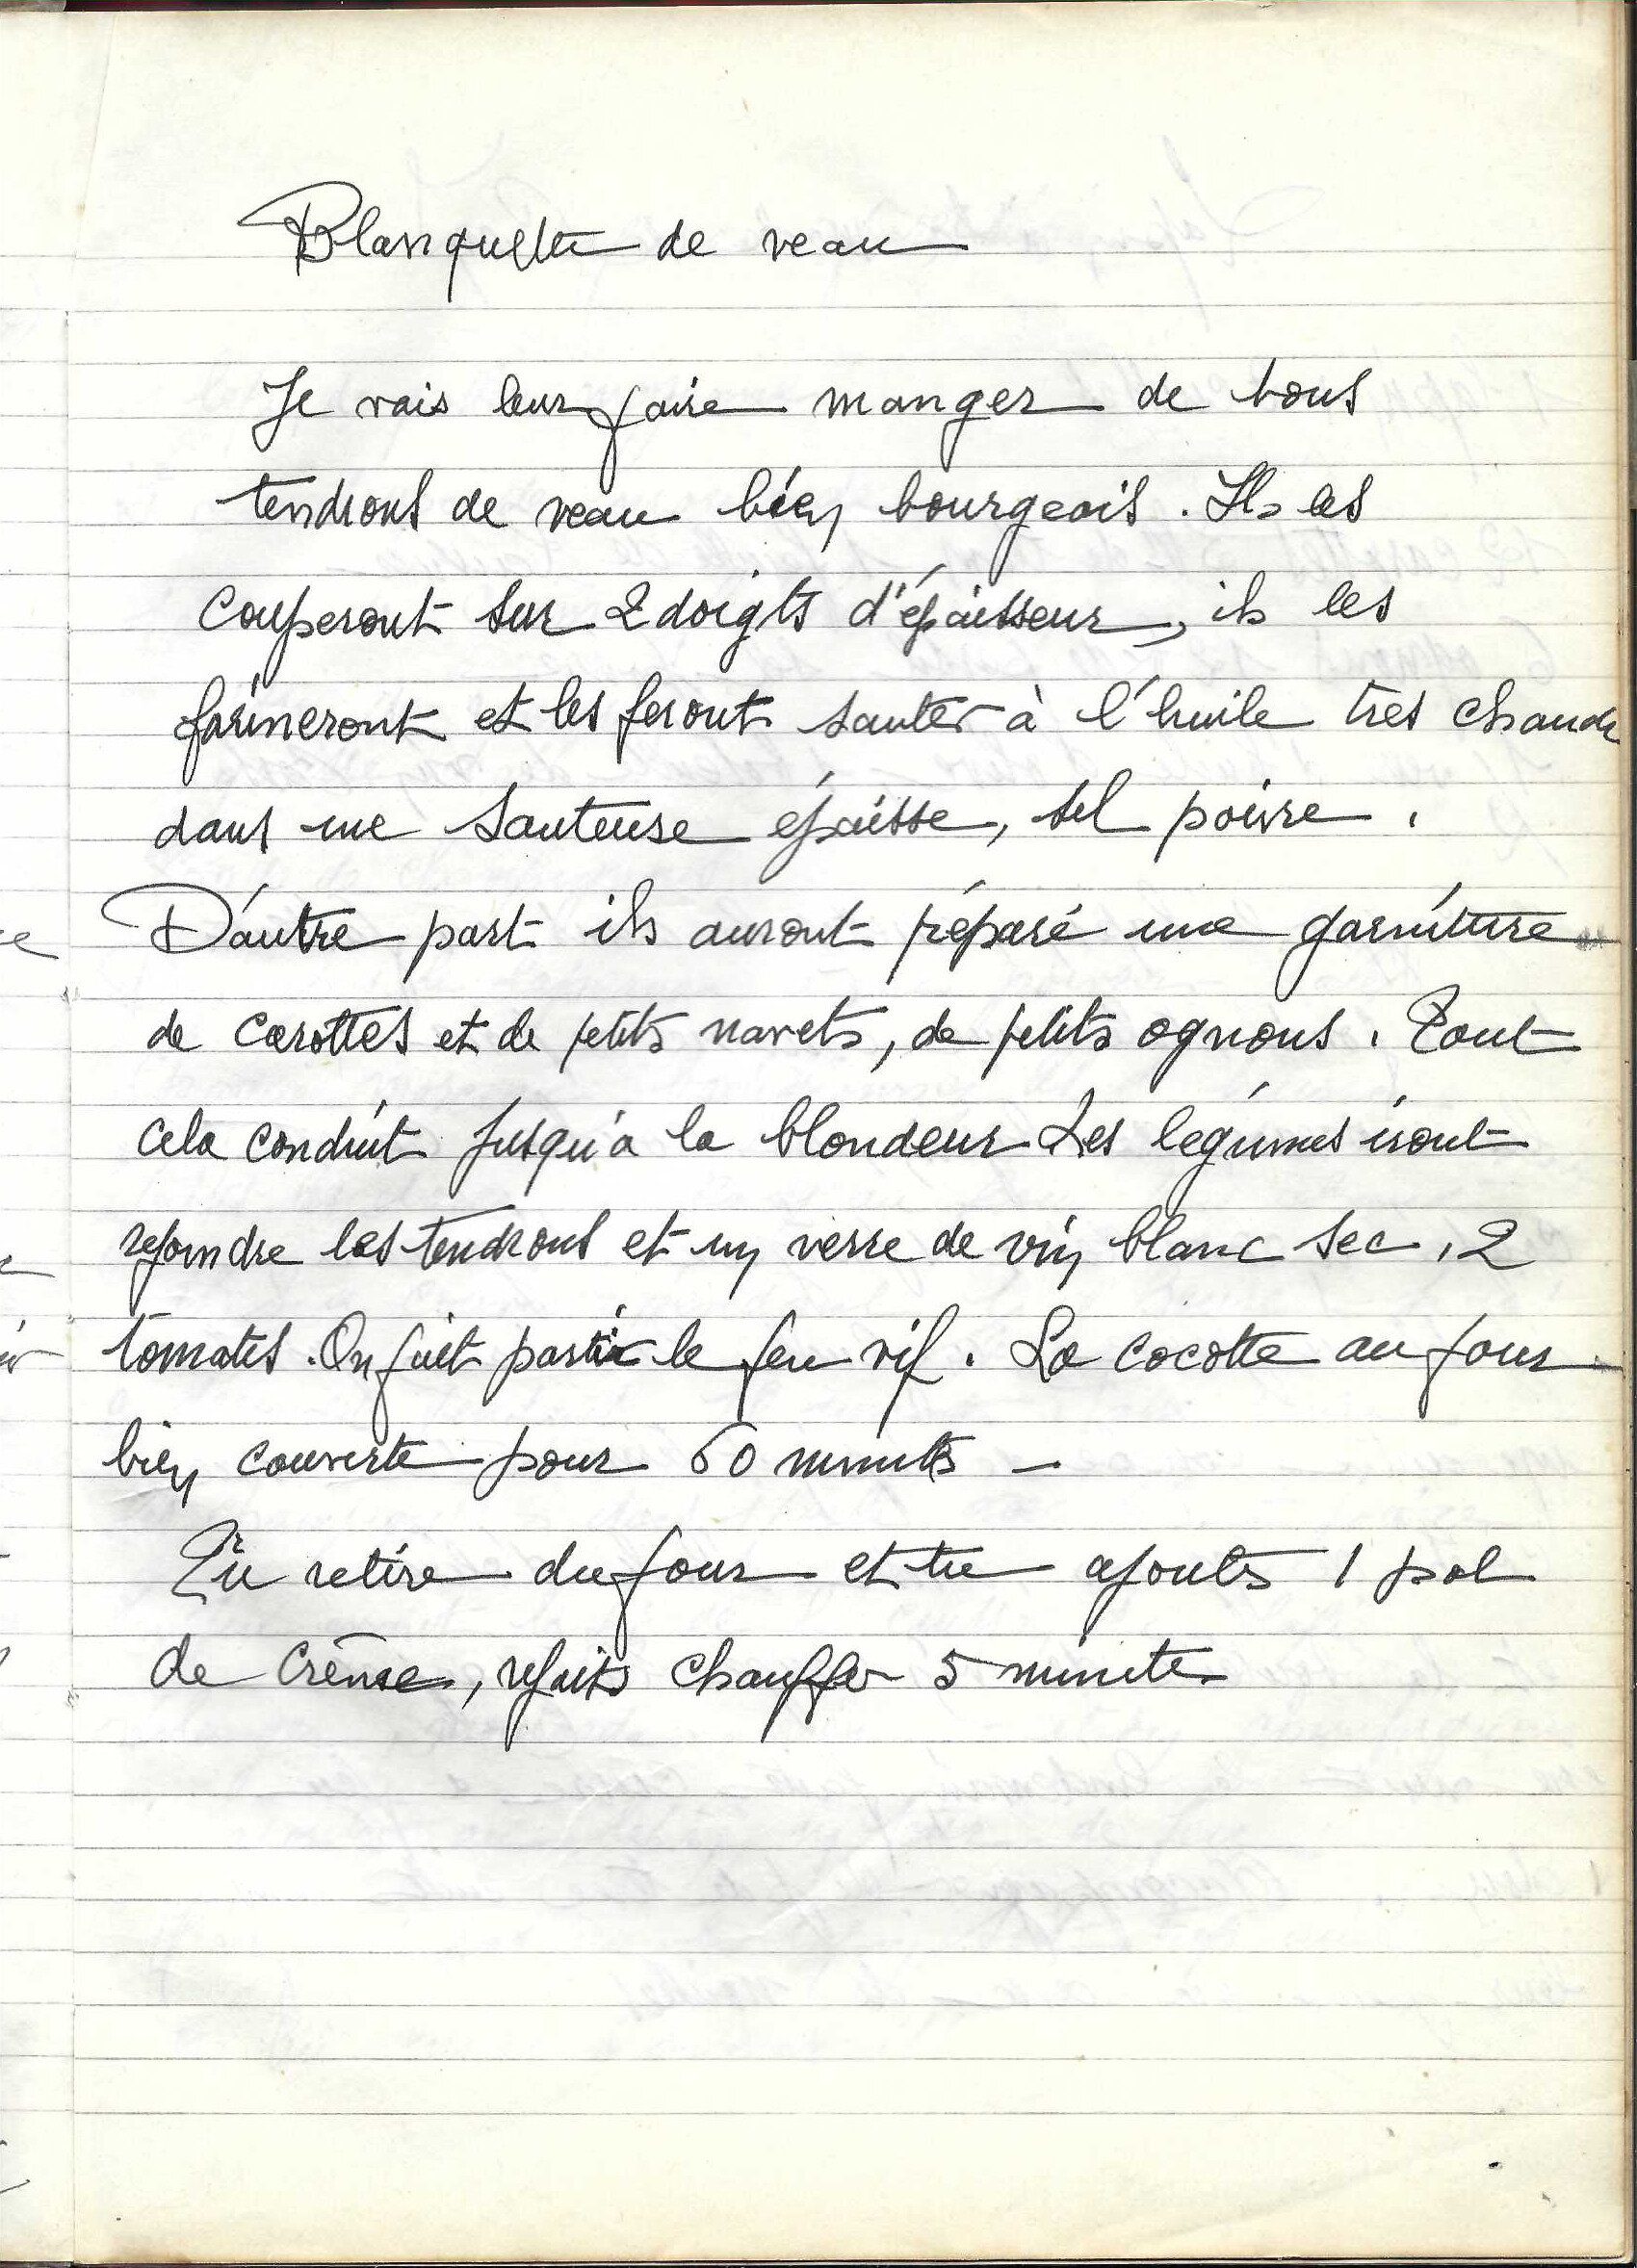 Blanquette de veau
Je vais leur faire manger de bons
tendrons de veau bien bourgeois. Ils les
couperont sur 2 doigts d'épaisseur, ils les
farineront et les feront sauter à l'huile très chaude
dans une sauteuse épaisse, sel poivre.
D'autre part ils auront préparé une garniture
de carottes et de petits navets, de petits ognons. Tout
cela conduit jusqu'à la blondeur Les légumes iront
rejoindre les tendrons et un verre de vin blanc sec, 2
tomates. On fait partir le feu vif. La cocotte au four
bien couverte pour 60 minutes -
Tu retire du four et tu ajoutes 1 pot
de crème, refaits chauffer 5 minutes